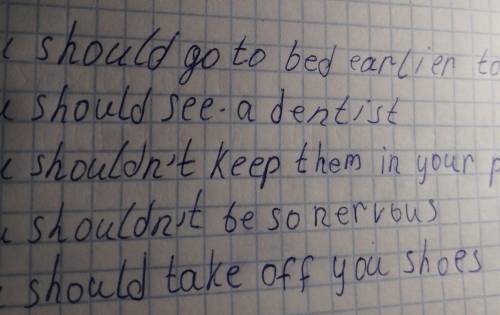 should go to bed earlier to
should see a dentist
shouldn't keep them in your p
shouldn't be so nervous
should take off you shoes